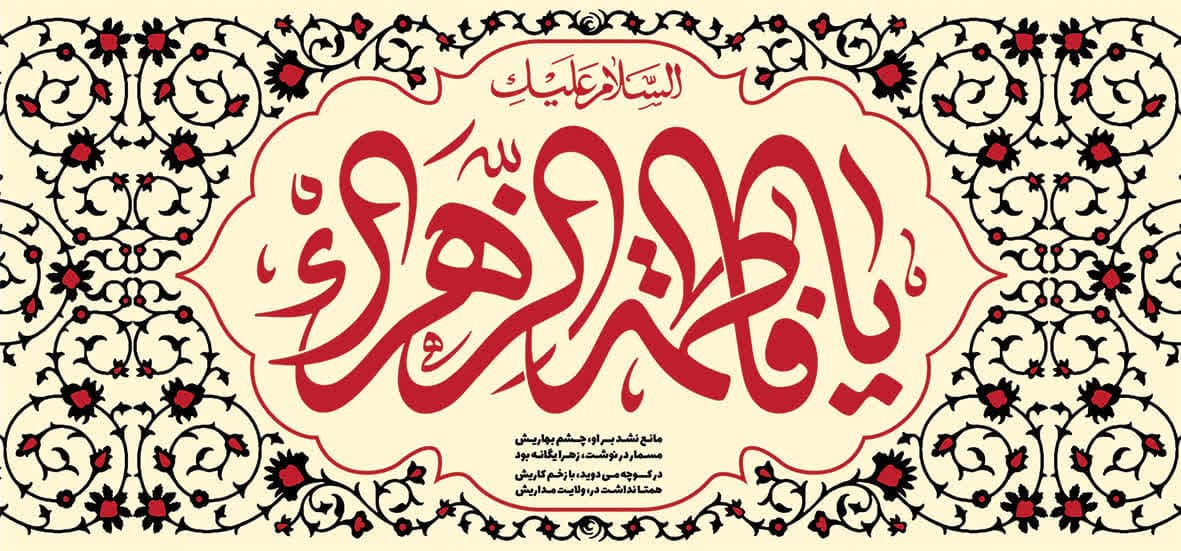 السَّلامُ عَلَيْكِ
يا فاطمة الزهراء
مانع نشد بر او، چشم بهاریش
مسمار در نوشت، زهرا یگانه بود
در کوچه می دوید، با زخم کاریش
همتا نداشت در، ولایت مداریش